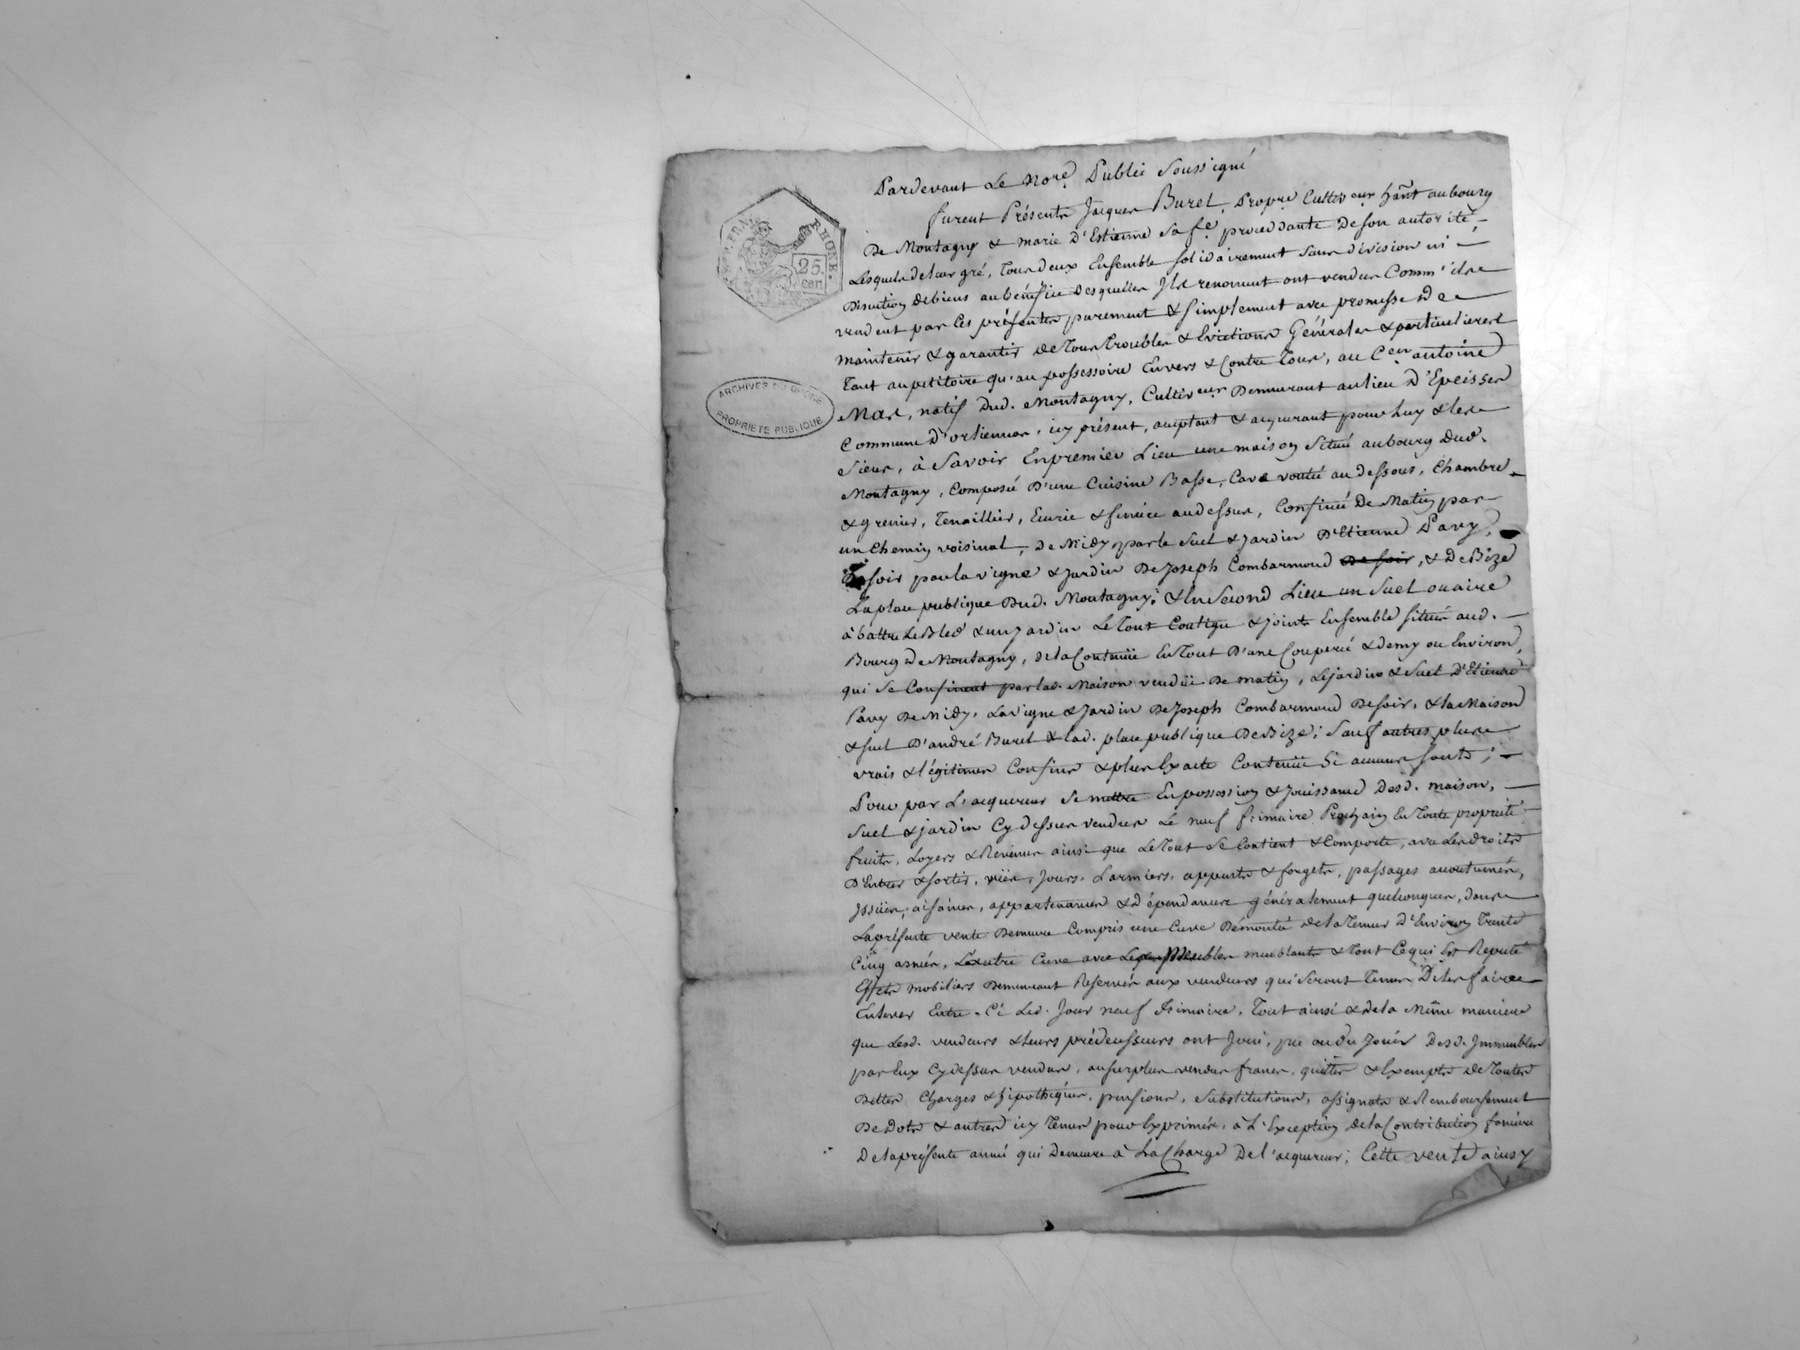 RHONE.
25.
cen.
ARCHIVES DU RHONE
PROPRIETE PUBLIQUE
Pardevant Le Nore. Public Soussigné
furent Présents Jacques Burel, Propre. Cultiveur hant aubourg
De Montagny & marie D'Estienne sa fe. procedante De son autorité,
Lesquels de leur gré, Tous deux Ensemble solidairement sans division ni
Discution de biens au bénéfice desquelles Ils renoncent ont vendus Comm'ils
vendent par Ces présentes purement & simplement avec promesse De
maintenir & garantir de Tous Troubles & Evictions Générales & particulieres
Tant au petitoire qu'au possessoire Envers & Contre Tous, au Cen antoine
Mas, natif Dud. Montagny, Cultiveur Demeurant au lieu D'Epeisses
Commune D'orlienas, icy présent, aceptant & acquerant pour luy & les
siens, à Savoir En premier Lieu une maison Située au bourg dud.
Montagny, Composée D'une Cuisine Basse, Cave voutée au dessous, Chambre
& grenier, Tenaillier, Ecurie & feniére au dessus, Confinée De Matin par
un Chemin voisinal, de Midy par le Suel & Jardin D'Etienne Pavy,
De soir par la vigne & Jardin De Joseph Combarmond De soir, & De Bize
La place publique Dud. Montagny; & En Second Lieu un Suel ou aire
à battre Le Bled & un Jardin Le Tout Contigu & Joints Ensemble situés aud.
Bourg De Montagny, de la Contenüe En Tout D'une Couperée & demy ou Environ,
qui se Confinent par lad. Maison vendüe De matin, Le jardin & Suel D'Etienne
Pavy De Midy, La vigne & Jardin De Joseph Combarmond De soir, & la Maison
& suel D'andré Burel & lad. place publique De Bize; Sauf autres plus
vrais & légitimes Confins & plus Exacte Contenüe Si aucuns sont;
Pour par L'acquereur Se mettre En possession & Jouissance Desd. maison,
Suel & jardin Cy dessus vendus Le neuf frimaire Prochain En Toute propriété
fruits, Loyers & Revenus ainsi que Le Tout Se Contient & Comporte, avec Les droits
D'Entrer & sortir, vües, Jours, Larmiers, & forgets, passages accoutumés,
Issües, aisances, appartenances & dépendances généralement quelconques, dans
La présente vente Demeure Compris une Cuve Démontée de la Teneur D'Environ Trente
Cinq asnées, L'autre Cuve avec Les Meubles meublants & Tout Ce qui Est Reputé
Effets mobiliers Demeurant Reservés aux vendeurs qui Seront Tenus De les faire
Enlever Entre Ci Led. Jour neuf frimaire, Tout ainsi & de la Même maniere
que Lesd. vendeurs & leurs prédecesseurs ont Joui, pu ou du Jouir Desd. Immeubles
par Eux Cy dessus vendus, au surplus vendus francs, quittes & Exempts de Toutes
Dettes Charges & hipothéques, pensions, Substitutions, assignats & Remboursement
De dots & autres icy Tenus pour Exprimés, à L'Exception de la Contribution fonciere
De la présente année qui Demeure à La Charge De l'acquereur; Cette vente ainsy